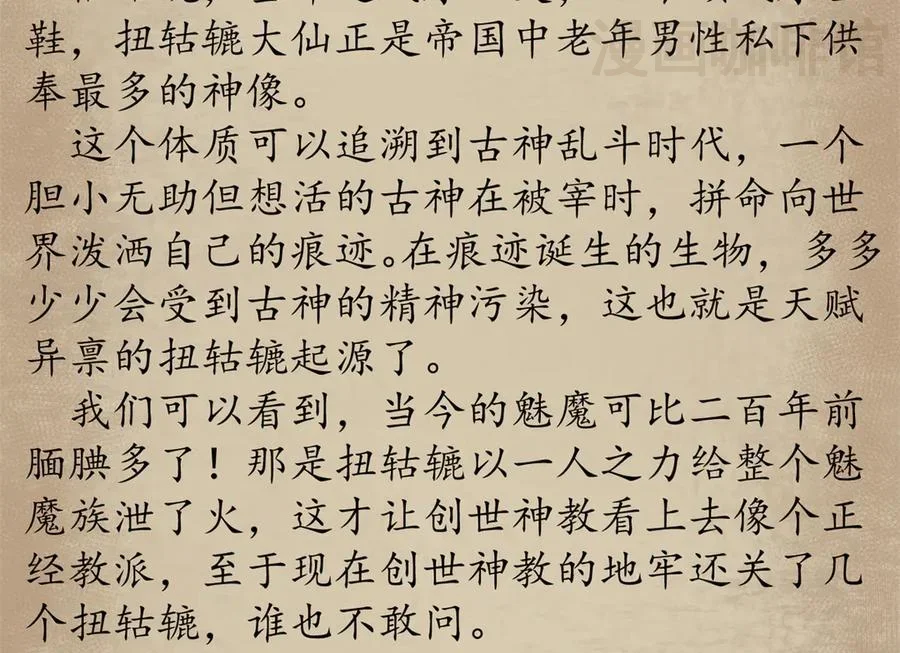 鞋，扭轱辘大仙正是帝国中老年男性私下供
奉最多的神像。
这个体质可以追溯到古神乱斗时代，一个
胆小无助但想活的古神在被宰时，拼命向世
界泼洒自己的痕迹。在痕迹诞生的生物，多多
少少会受到古神的精神污染，这也就是天赋
异禀的扭轱辘起源了。
我们可以看到，当今的魅魔可比二百年前
腼腆多了！那是扭轱辘以一人之力给整个魅
魔族泄了火，这才让创世神教看上去像个正
经教派，至于现在创世神教的地牢还关了几
个扭轱辘，谁也不敢问。
漫画咖啡馆